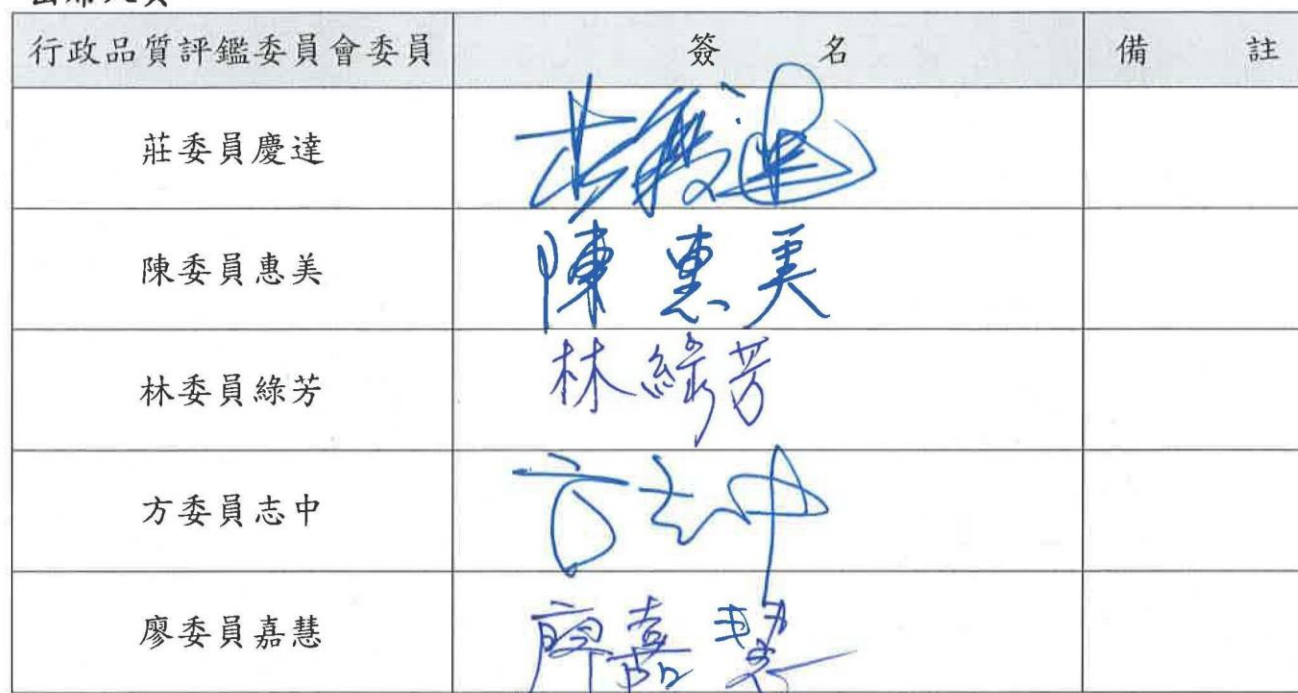 出席人員
行政品質評鑑委員會委員 簽名 備註
莊委員慶達 莊慶達
陳委員惠美 陳惠美
林委員綠芳 林綠芳
方委員志中 方志中
廖委員嘉慧 廖嘉慧